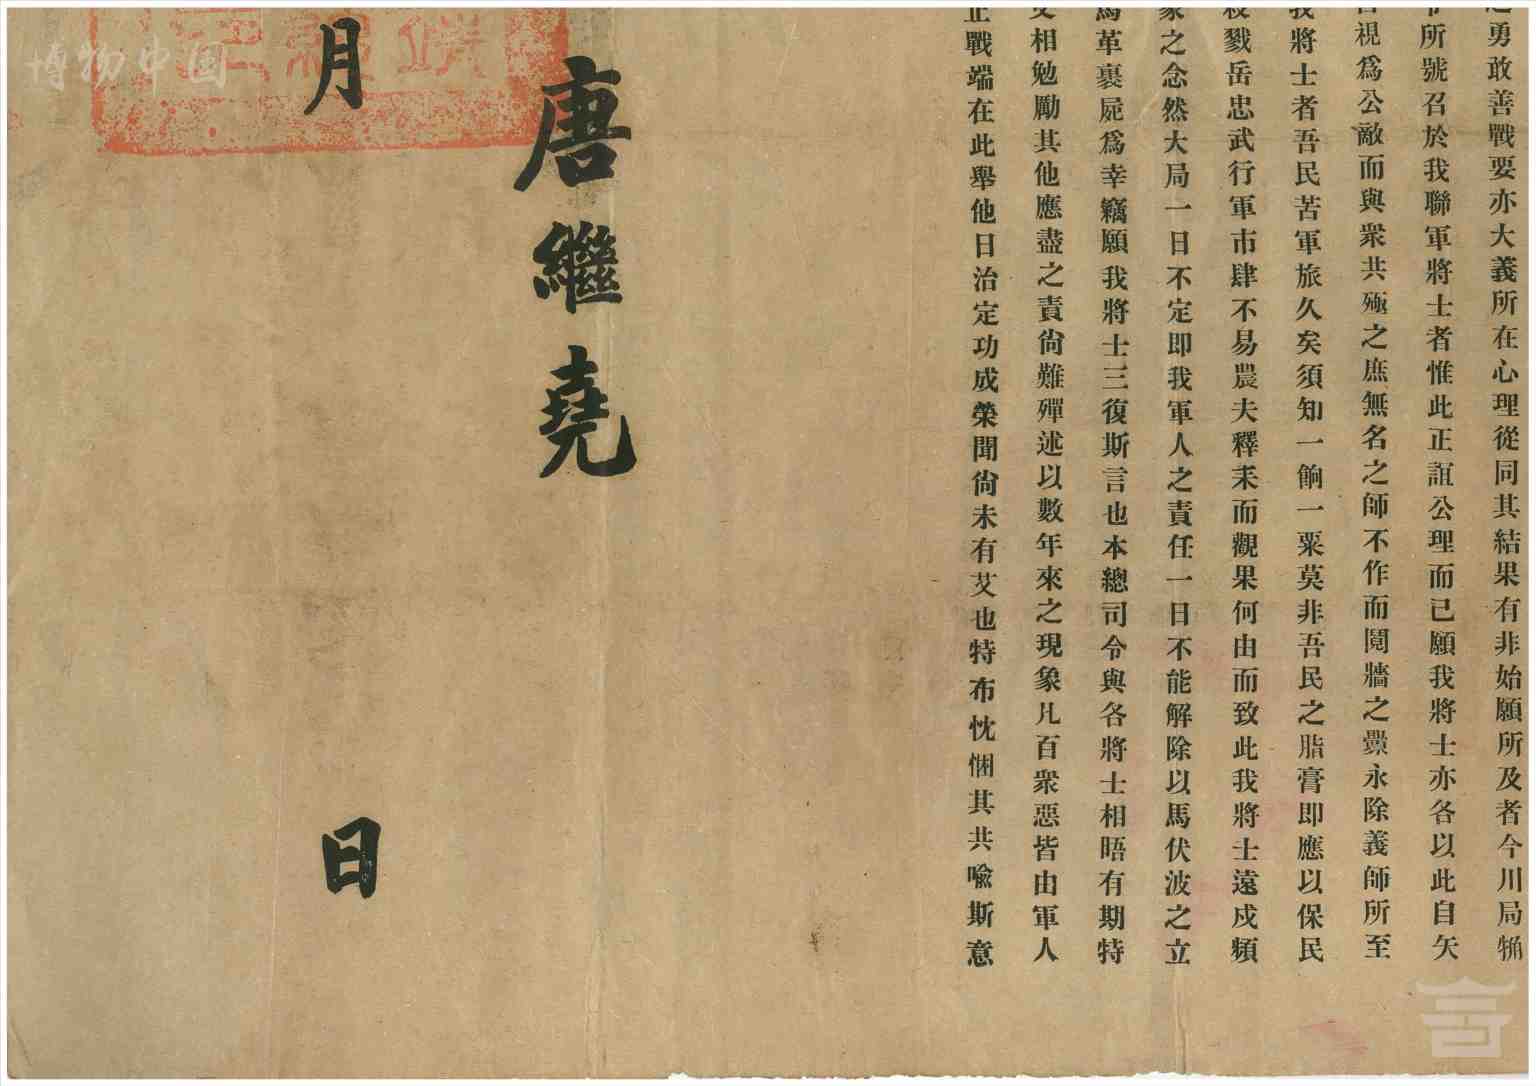 勇敢善戰要亦大義所在心理從同其結果有非始願所及者今川局
所號召於我聯軍將士者惟此正誼公理而已願我將士亦各以此自矢
視爲公敵而與衆共殛之庶無名之師不作而鬩牆之釁永除義師所至
我將士者吾民苦軍旅久矣須知一餉一粟莫非吾民之脂膏即應以保民
戮岳忠武行軍市肆不易農夫釋耒而觀果何由而致此我將士遠戍頻
之念然大局一日不定即我軍人之責任一日不能解除以馬伏波之立
馬革裹屍爲幸竊願我將士三復斯言也本總司令與各將士相晤有期特
相勉勵其他應盡之責尙難殫述以數年來之現象凡百衆惡皆由軍人
正戰端在此舉他日治定功成榮聞尙未有艾也特布忱悃其共喩斯意
唐繼堯
月 日
博物中国